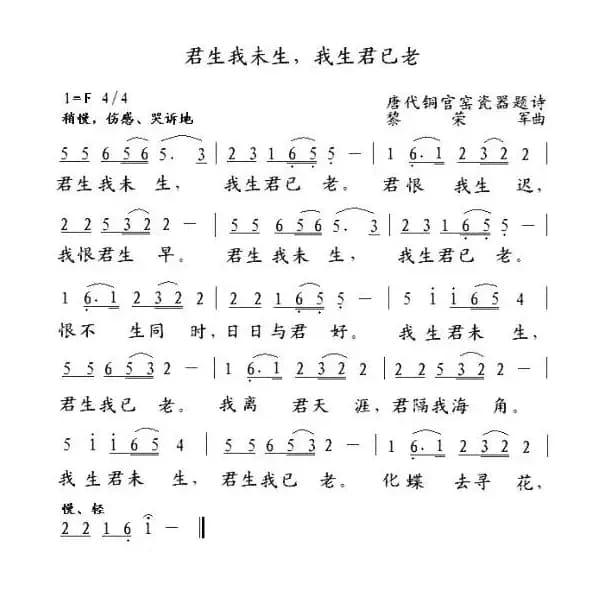 君生我未生，我生君已老
1=F 4/4
唐代铜官窑瓷器题诗
稍慢，伤感、哭诉地
黎荣军曲
5 5 6 5 6 5. 3 | 2 3 1 6 5 5 — | 1 6. 1 2 3 2 2 |
君生我未 生， 我生君已 老。 君恨 我生 迟，
2 2 5 3 2 2 — | 5 5 6 5 6 5. 3 | 2 3 1 6 5 5 — |
我恨君生 早。 君生我未 生， 我生君已 老。
1 6. 1 2 3 2 2 | 2 2 1 6 5 5 — | 5 i i 6 5 4 |
恨不 生同 时，日日与君 好。 我生君未 生，
5 5 6 5 3 2 2 — | 6. 1 2 3 2 2 | 2 2 5 3 2 2 — |
君生我已 老。 我离 君天 涯，君隔我海 角。
5 i i 6 5 4 | 5 5 6 5 3 2 — | 1 6. 1 2 3 2 2 |
我生君未 生， 君生我已 老。 化蝶 去寻 花，
慢、轻
2 2 1 6 i — ‖